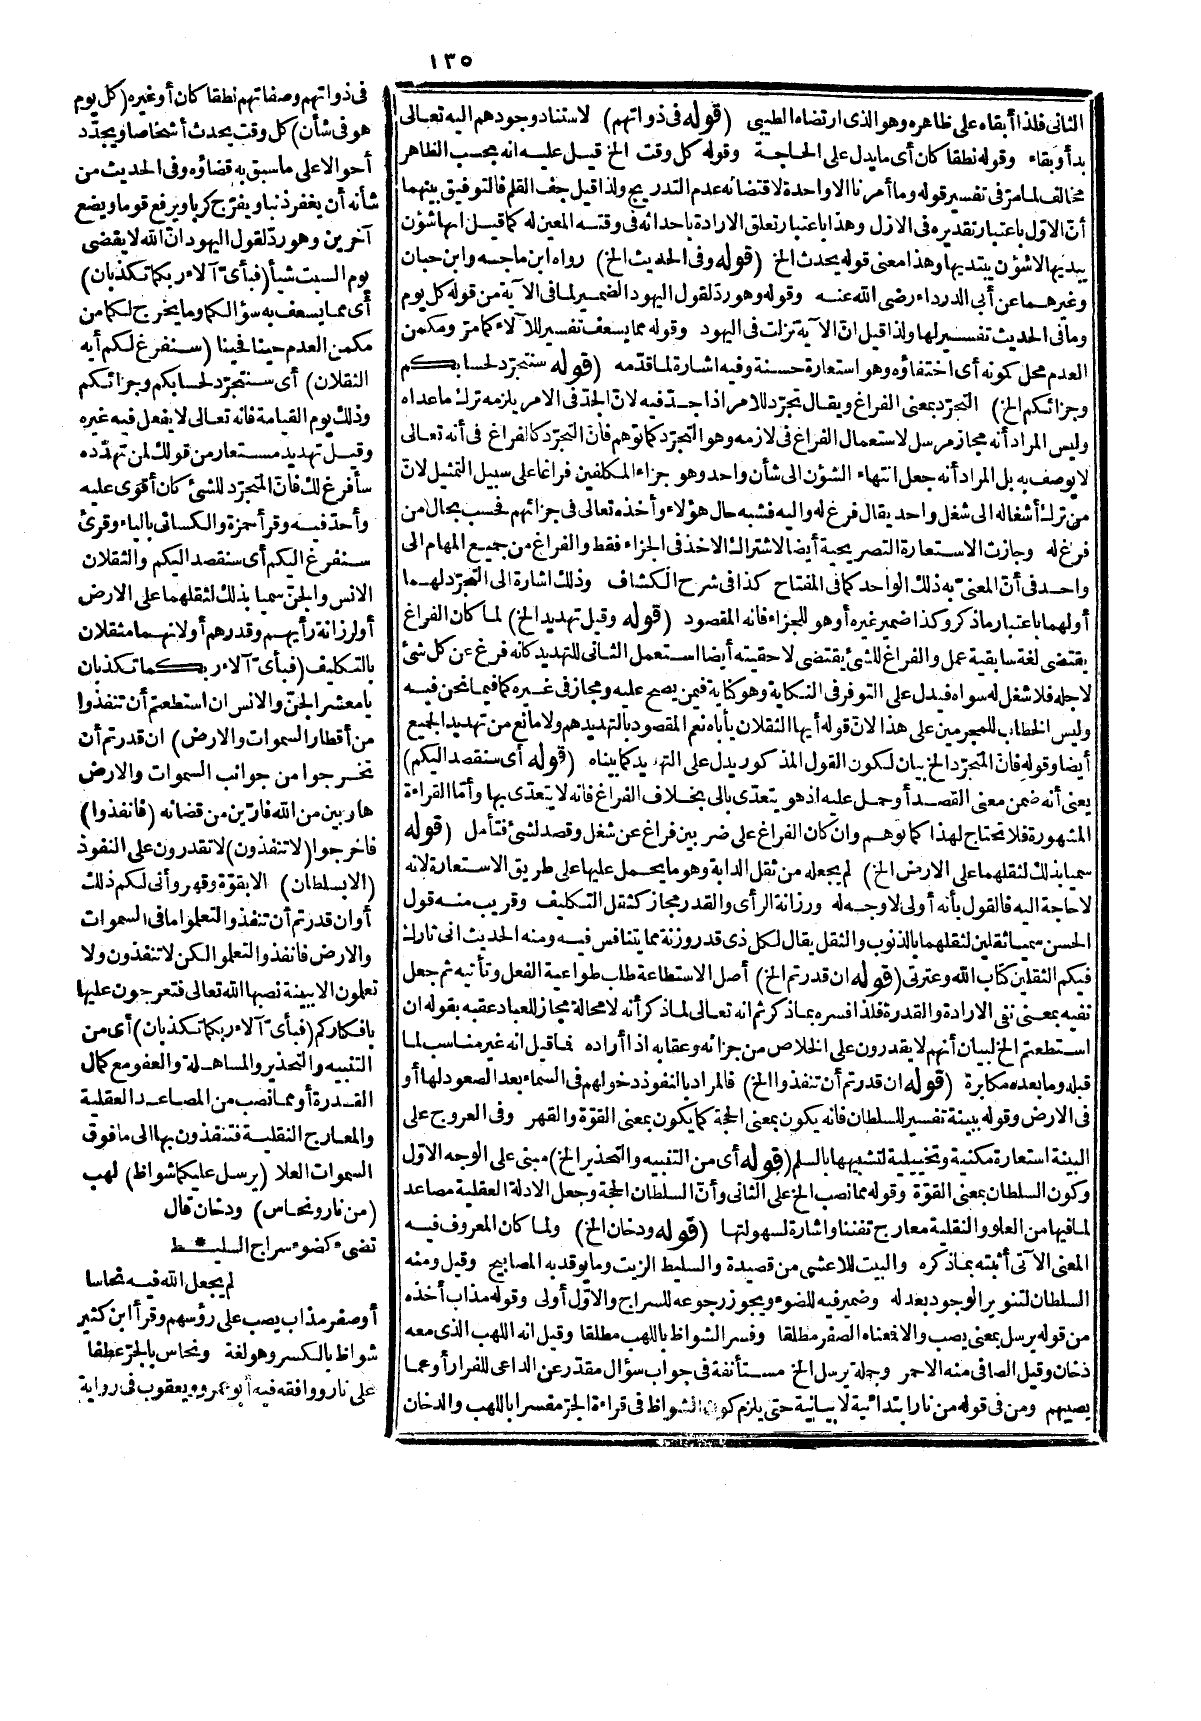 ١٣٥
الثانى فلذا أبقاه على ظاهره وهو الذى ارتضاه الطيبى (قوله فى ذواتهم) لاستناد وجودهم اليه تعالى
بدأ وبقاء وقوله نطقا كان أى ما يدل على الحاجة وقوله كل وقت الخ قيل عليه انه بحسب الظاهر
مخالف لما مر فى تفسير قوله وما أمرنا الا واحدة لاقتضائه عدم التدريج ولذا قيل جف القلم فالتوفيق بينهما
أنّ الاوّل باعتبار تقديره فى الازل وهذا باعتبار تعلق الارادة باحداثه فى وقته المعين له كما قيل انها شؤن
يبديها لا شؤن يبتديها وهذا معنى قوله يحدث الخ (قوله وفى الحديث الخ) رواه ابن ماجه وابن حبان
وغيرهما عن أبى الدرداء رضى الله عنه وقوله وهو ردّ لقول اليهود الضمير لما فى الآية من قوله كل يوم
وما فى الحديث تفسير لها ولذا قيل انّ الآية نزلت فى اليهود وقوله مما يسعف تفسير للآلاء كما مرّ ومكمن
العدم محل كونه أى اختفاؤه وهو استعارة حسنة وفيه اشارة لما قدّمه (قوله سنتجرّد لحسابكم
وجزائكم الخ) التجرّد بمعنى الفراغ ويقال تجرّد للامر اذا جدّ فيه لانّ الجدّ فى الامر يلزمه ترك ما عداه
وليس المراد أنه مجاز مرسل لاستعمال الفراغ فى لازمه وهو التجرّد كما توهم فانّ التجرّد كالفراغ فى أنه تعالى
لا يوصف به بل المراد أنه جعل انتهاء الشؤن الى شأن واحد وهو جزاء المكلفين فراغا على سبيل التمثيل لانّ
من ترك أشغاله الى شغل واحد يقال فرغ له واليه فشبه حال هؤلاء وأخذه تعالى فى جزائهم فحسب بحال من
فرغ له وجازت الاستعارة التصريحية أيضا لاشتراك الاخذ فى الجزاء فقط والفراغ من جميع المهام الى
واحد فى أنّ المعنىّ به ذلك الواحد كما فى المفتاح كذا فى شرح الكشاف وذلك اشارة الى التجرّد لهما
أو لهما باعتبار ما ذكر وكذا ضمير غيره أو هو للجزاء فانه المقصود (قوله وقيل تهديد الخ) لما كان الفراغ
يقتضى لغة سابقية عمل والفراغ للشئ يقتضى لاحقيته أيضا استعمل الثانى للتهديد كانه فرغ عن كل شئ
لاجله فلا شغل له سواه فيدل على التوفر فى النكاية وهو كناية فيمن يصح عليه ومجاز فى غيره كما فيما نحن فيه
وليس الخطاب للمجرمين على هذا لانّ قوله أيها الثقلان يأباه نعم المقصود بالتهديد هم ولا مانع من تهديد الجميع
أيضا وقوله فانّ المتجرّد الخ بيان لكون القول المذكور يدل على التهديد كما بيناه (قوله أى سنقصد اليكم)
يعنى أنه ضمن معنى القصد أو حمل عليه اذ هو يتعدّى بالى بخلاف الفراغ فانه لا يتعدّى بها وأمّا القراءة
المشهورة فلا تحتاج لهذا كما توهم وان كان الفراغ على ضربين فراغ عن شغل وقصد لشئ فتأمل (قوله
سميا بذلك لثقلهما على الارض الخ) لم يجعله من ثقل الدابة وهو ما يحمل عليها على طريق الاستعارة لانه
لا حاجة اليه فالقول بأنه أولى لا وجه له ورزانة الرأى والقدر مجاز كثقل التكليف وقريب منه قول
الحسن سميا ثقلين لثقلهما بالذنوب والثقل يقال لكل ذى قدر وزنة مما يتنافس فيه ومنه الحديث انى تارك
فيكم الثقلين كتاب الله وعترتى (قوله ان قدرتم الخ) أصل الاستطاعة طلب طواعية الفعل وتأتيه ثم جعل
نفيه بمعنى نفى الارادة والقدرة فلذا فسره بما ذكر ثم انه تعالى لما ذكر أنه لا محالة مجاز للعباد عقبه بقوله ان
استطعتم الخ لبيان أنهم لا يقدرون على الخلاص من جزائه وعقابه اذا أراده فما قيل انه غير مناسب لما
قبله وما بعده مكابرة (قوله ان قدرتم أن تنفذوا الخ) فالمراد بالنفوذ دخولهم فى السماء بعد الصعود لها أو
فى الارض وقوله ببينة تفسير للسلطان فانه يكون بمعنى الحجة كما يكون بمعنى القوّة والقهر وفى العروج على
البينة استعارة مكنية وتخييلية لتشبيهها بالسلم (قوله أى من التنبيه والتحذير الخ) مبنى على الوجه الاوّل
وكون السلطان بمعنى القوّة وقوله مما نصب الخ على الثانى وأنّ السلطان الحجة وجعل الادلة العقلية مصاعد
لما فيها من العلو والنقلية معارج تفننا واشارة لسهولتها (قوله ودخان الخ) ولما كان المعروف فيه
المعنى الآتى أثبته بما ذكره والبيت للاعشى من قصيدة والسليط الزيت وما يوقد به المصابيح وقيل ومنه
السلطان لتنوير الوجود بعدله وضمير فيه للضوء ويجوز رجوعه للسراج والاوّل أولى وقوله مذاب أخذه
من قوله يرسل بمعنى يصب والا فمعناه الصفر مطلقا وفسر الشواظ باللهب مطلقا وقيل انه اللهب الذى معه
دخان وقيل الصافى منه الاحمر وجملة يرسل الخ مستأنفة فى جواب سؤال مقدّر عن الداعى للفرار أو عما
يصيبهم ومن فى قوله من نار ابتدائية لا بيانية حتى يلزم كون الشواظ فى قراءة الجرّ مفسرا باللهب والدخان
فى ذواتهم وصفاتهم نطقا كان أو غيره (كل يوم
هو فى شأن) كل وقت يحدث أشخاصا ويجدّد
أحوالا على ما سبق به قضاؤه وفى الحديث من
شأنه أن يغفر ذنبا ويفرّج كربا ويرفع قوما ويضع
آخرين وهو ردّ لقول اليهود انّ الله لا يقضى
يوم السبت شيأ (فبأىّ آلاء ربكما تكذبان)
أى مما يسعف به سؤالكما وما يخرج لكما من
مكمن العدم حينا فحينا (سنفرغ لكم أيه
الثقلان) أى سنتجرّد لحسابكم وجزائكم
وذلك يوم القيامة فانه تعالى لا يفعل فيه غيره
وقيل تهديد مستعار من قولك لمن تهدّده
سأفرغ لك فانّ المتجرّد للشئ كان أقوى عليه
وأجدّ فيه وقرأ حمزة والكسائى بالياء وقرئ
سنفرغ اليكم أى سنقصد اليكم والثقلان
الانس والجنّ سميا بذلك لثقلهما على الارض
أو لرزانة رأيهم وقدرهم أو لانهما مثقلان
بالتكليف (فبأىّ آلاء ربكما تكذبان
يا معشر الجنّ والانس ان استطعتم أن تنفذوا
من أقطار السموات والارض) ان قدرتم أن
تخرجوا من جوانب السموات والارض
هاربين من الله فارّين من قضائه (فانفذوا)
فاخرجوا (لا تنفذون) لا تقدرون على النفوذ
(الا بسلطان) الا بقوّة وقهر وأنى لكم ذلك
أو ان قدرتم أن تنفذوا لتعلموا ما فى السموات
والارض فانفذوا لتعلموا لكن لا تنفذون ولا
تعلمون الا ببينة نصبها الله تعالى فتعرجون عليها
بافكاركم (فبأىّ آلاء ربكما تكذبان) أى من
التنبيه والتحذير والمساهلة والعفو مع كمال
القدرة أو مما نصب من المصاعد العقلية
والمعارج النقلية فتنفذون بها الى ما فوق
السموات العلا (يرسل عليكما شواظ) لهب
(من نار ونحاس) ودخان قال
تضىء كضوء سراج السليـ * ـط
لم يجعل الله فيه نحاسا
أو صفر مذاب يصب على رؤسهم وقرأ ابن كثير
شواظ بالكسر وهو لغة ونحاس بالجرّ عطفا
على نار ووافقه فيه أبو عمرو ويعقوب فى رواية